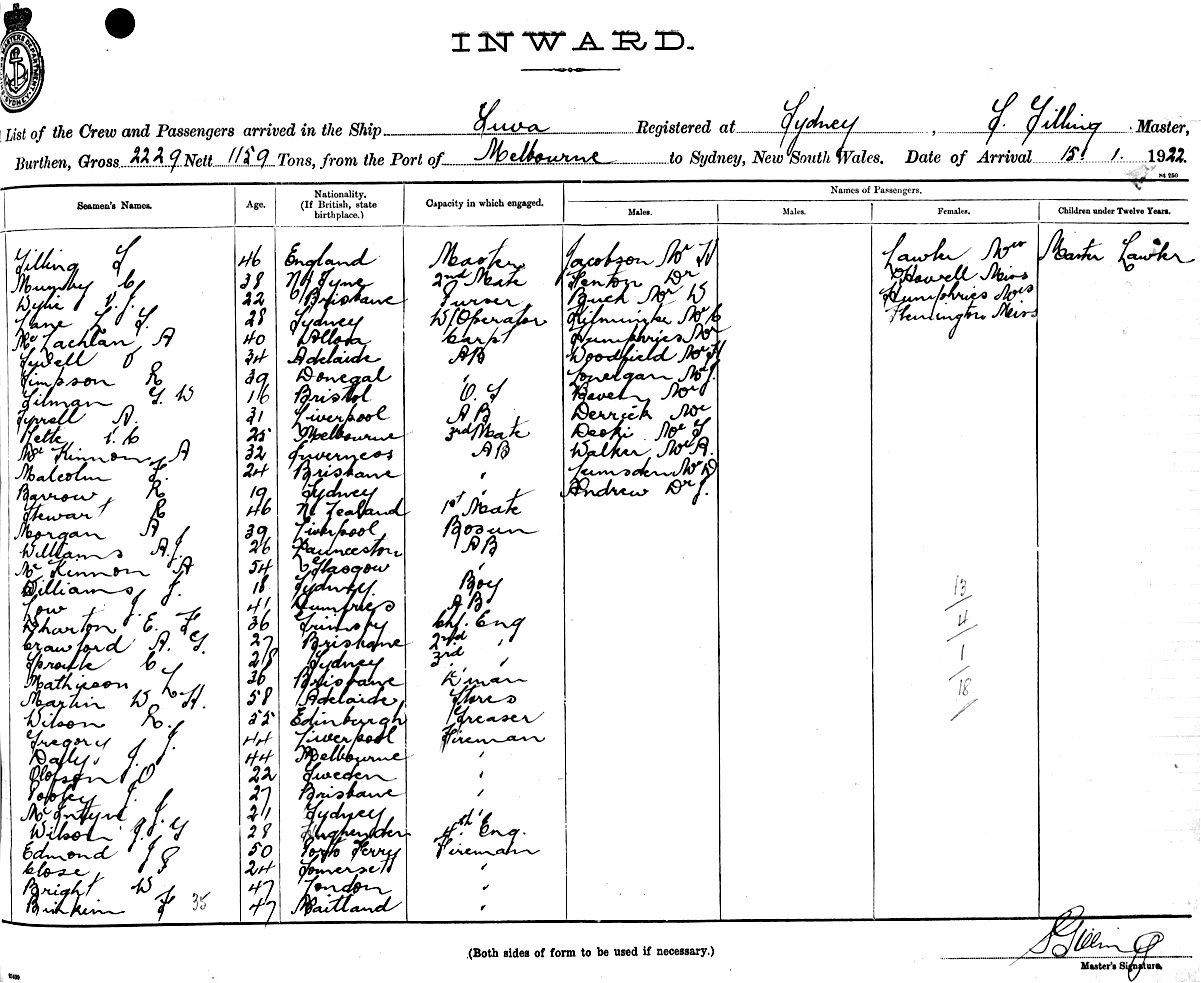 INWARD.
List of the Crew and Passengers arrived in the Ship Suva Registered at Sydney, S. Gilling Master,
Burthen, Gross 2229 Nett 1159 Tons, from the Port of Melbourne to Sydney, New South Wales. Date of Arrival 15. 1. 1922.
Names of Passengers.
Seamen's Names. Age. Nationality. (If British, state birthplace.) Capacity in which engaged. Males. Males. Females. Children under Twelve Years.
Gilling S 46 England Master Jacobson Mr H Lawke Mrs Master Lawke
Mumby C 38 N/Tyne 2nd Mate Fenton Dr Howell Miss
Wylie V. J. 22 Brisbane Purser Buch Mr W Humphries Miss
Lane L. S. 28 Sydney W/Operator Mr C Flemington Miss
McLachlan, A 40 Alloa Carpt Humphries Mr
34 Adelaide AB Woodfield Mr
Simpson R 39 Donegal " Lonergan Mr J.
Gilman G. W 16 Bristol O. S Baven Mr
Tyrell A. 31 Liverpool AB Derrick Mr
25 Melbourne 3rd Mate Mr S
McKinnon, A 32 Inverness AB Walker, Mr A.
Malcolm F. 24 Brisbane " Lumsden Mr D
Barrow R 19 Sydney " Andrew Dr J.
Stewart R 46 N. Zealand 1st Mate
Morgan A 39 Liverpool Bosun
Williams A. J 26 Launceston AB
McKinnon A 54 Glasgow "
Williams, J. 18 Sydney. Boy
Low J. 41 Dumfries AB
Wharton E. F 36 Grimsby Chf. Eng
Crawford A. G. 27 Brisbane 2nd "
Sproule C 28 Sydney 3rd "
Mathieson L 36 Brisbane D'man
Martin W. H. 58 Adelaide Stores
Wilson R. 55 Edinburgh Greaser
Gregory J. 44 Liverpool Fireman
Daly J. J 44 Melbourne "
Olofson O 22 Sweden "
J. 27 Brisbane "
McIntyre J. 21 Sydney "
Wilson J. G 28 Hughenden 4th Eng.
Edmond J 50 Port Ferry Fireman
Close J F 24 Somerset "
Bright W 47 London "
F 35 47 Maitland "
13
4
1
18
(Both sides of form to be used if necessary.)
S Gilling
Master's Signature.